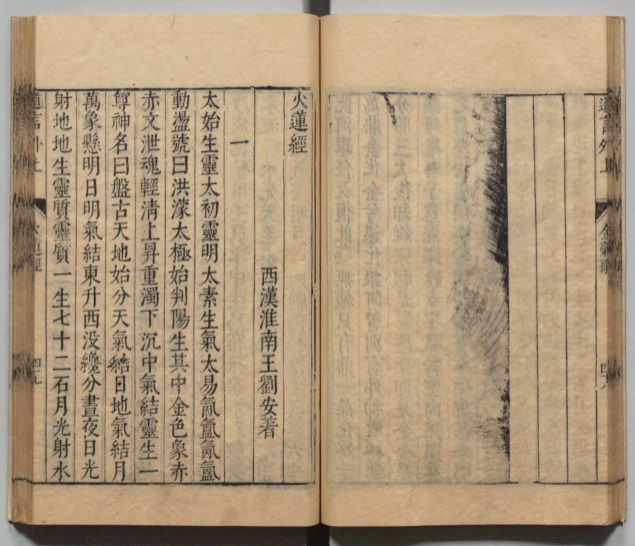 道言外上
四八
火蓮經
西漢淮南王劉安著
一
太始生靈太初靈明太素生氣太易氤氳氤氳
動盪號曰洪濛太極始判陽生其中金色象赤
赤文泄魂輕清上昇重濁下沉中氣結靈生一
尊神名曰盤古天地始分天氣結日地氣結月
萬象懸明日明氣結東升西没纔分晝夜日光
射地地生靈質靈質一生七十二石月光射水
道言外上
火蓮經
四九